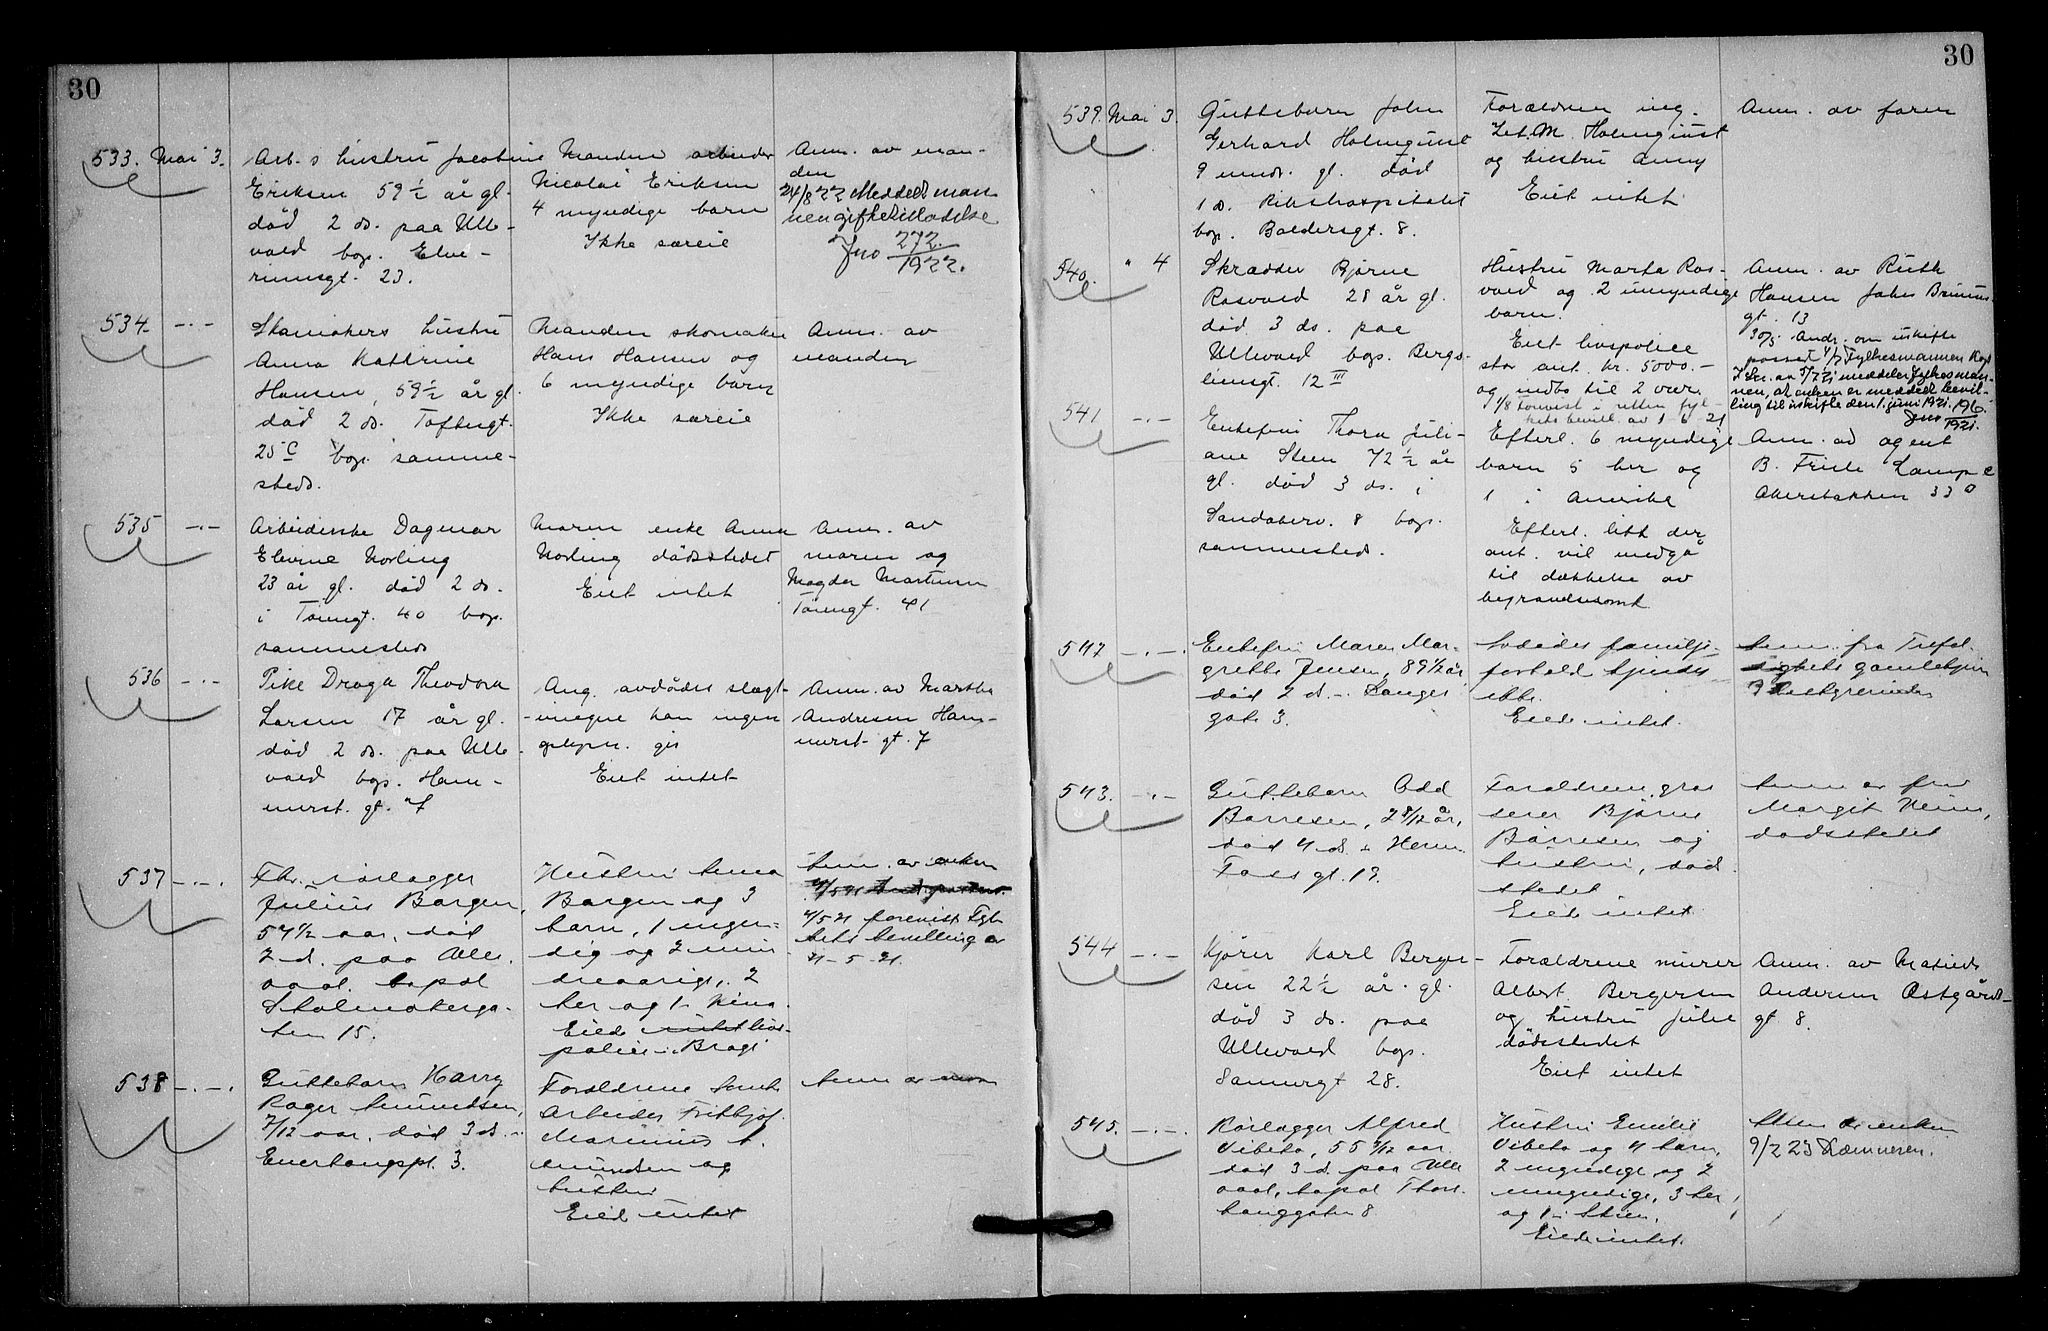 30
533. Mai 3.
Arb.s hustru Jacobine
Eriksen 59 1/2 år gl.
død 2 ds. paa Ulle-
vaal bop. Elve-
rumsgt. 23.
Manden arbeider
Nicolai Eriksen
4 myndige barn
Ikke særeie
Anm. av man-
den
24/8 22 Meddelt man-
nen giftetilladelse
Jno 272
1922.
534 -.-
Skomakers hustru
Anna Kathrine
Hansen, 59 1/2 år gl.
død 2 ds. Toftesgt.
25 C bop. samme-
steds.
Manden skomaker
Hans Hansen og
6 myndige barn
Ikke særeie
Anm. av
manden
535 -.-
Arbeiderske Dagmar
Elevine Norling
23 år gl. død 2 ds.
i Tøiengt. 40 bop.
sammesteds
Moren enke Anna
Norling dødsstedet
Eiet intet
Anm. av
moren og
Magda Martinsen
Tøiengt. 41
536 -.-
Pike Draga Theodora
Larsen 17 år gl.
død 2 ds. paa Ulle-
vaal bop. Ham-
merst. gt. 7
Ang. avdødes slegt-
ningne kan ingen
oplysn. gis
Eiet intet
Anm. av Martha
Andresen Ham-
merst. gt. 7
537 -.-.
Fhv. rørlægger
Julius Borgen,
57 1/2 aar, død
2 d. paa Ulle-
vaal, bopal
Skolmakerga-
ten 15.
Hustru Anna
Borgen og 3
barn, 1 myn-
dig og 2 min
dreaarige, 2
her og 1 i
Eiede intet livs-
police i Brage
Anm. av enken
4/5 21 forevist Fyl-
kets bevilling av
21-5-21.
538 -.-.
Guttebarn Harry
Roger Amundsen,
7/12 aar, død 3 d. i
Enerhaugpl. 3.
Forældrene
Arbeider Fritjof
Marinius A-
mundsen og
hustru
Eiede intet
Anm av
30
539. Mai 3.
Guttebarn John
Gerhard Holmquist
9 mnds. gl. død
1 ds. Rikshospitalet
bop. Baldersgt. 8.
Forældrene ing.
Zet. M. Holmquist
og hustru Anny
Eiet intet
Anm. av faren
540. " 4
Skrædder Bjarne
Rosvold 28 år gl.
død 3 ds. paa
Ullevaal bop. Bergs-
liensgt. 12 III
Hustru Marta Ros-
vold og 2 umyndige
barn.
Eiet livspolice
stor ant. kr. 5000.-
og indbo til 2 vær.
1/8 forevist i retten fyl-
kets bevill. av 1 6 21
Anm. av Ruth
Hansen John Bruuns
gt. 13
30/5 Andr. om uskifte
passet 4/7 Fylkesmannen
i skr. av 5/7 21 meddeler fylkesman-
nen, at enken er meddelt bevil-
ling til uskifte den 1. juni 1921. 196
Jno 1921.
541 -.-
Enkefru Thora Juli-
ane Steen 72 1/2 år
gl. død 3 ds. i
Sandakerv. 8 bop.
sammesteds.
Efterl. 6 myndige
barn 5 her og
1 i Amerika
Efterl. litt der
ant. vil medgå
til dækkelse av
begravelsesomk.
Anm. av agent
B. Friele Lampe
Akersbakken 33
542 -.-.
Enkefru Maren Mar-
grethe Jensen, 89 1/2 år,
død 2 d. - Langes
gate 3.
Avdødes familje
forhold kjendes
ikke.
Eiede intet.
Anm. fra Trefol-
dighets gamlehjem
543. -.-
Guttebarn Odd
Børresen, 2 8/12 år,
død 4 d. i Herm.
Foss gt. 19.
Forældrene, gros
serer Bjørn
Børresen og
hustru, død
stedet
Eiede intet
Anm av fru
Margit Heim,
dødsstedet
544 -.-
Kjører Karl Berger-
sen 22 1/2 år. gl.
død 3 ds. paa
Ullevaal bop.
Sannergt 28.
Forældrene murer
Albert Bergersen
og hustru Julie
dødsstedet
Eiet intet
Anm. av Matilde
Andersen Østgårds-
gt. 8.
545. -.-.
Rørlægger Alfred
Vibeto, 55 9/12 aar
død 3 d. paa Ulle
vaal, bopal Thor
hauggaten 8
Hustru Emilie
Vibeto og 4 barn,
2 myndige og 2
umyndige, 3 her
og 1 i Skien.
Eiede intet.
Anm av enken
9/2 23 Kæmneren.